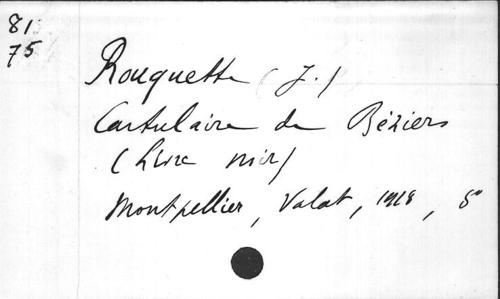 81
75
Rouquette (J.)
Cartulaire de Béziers
(Livre noir)
Montpellier, Valat, 1918, 8°